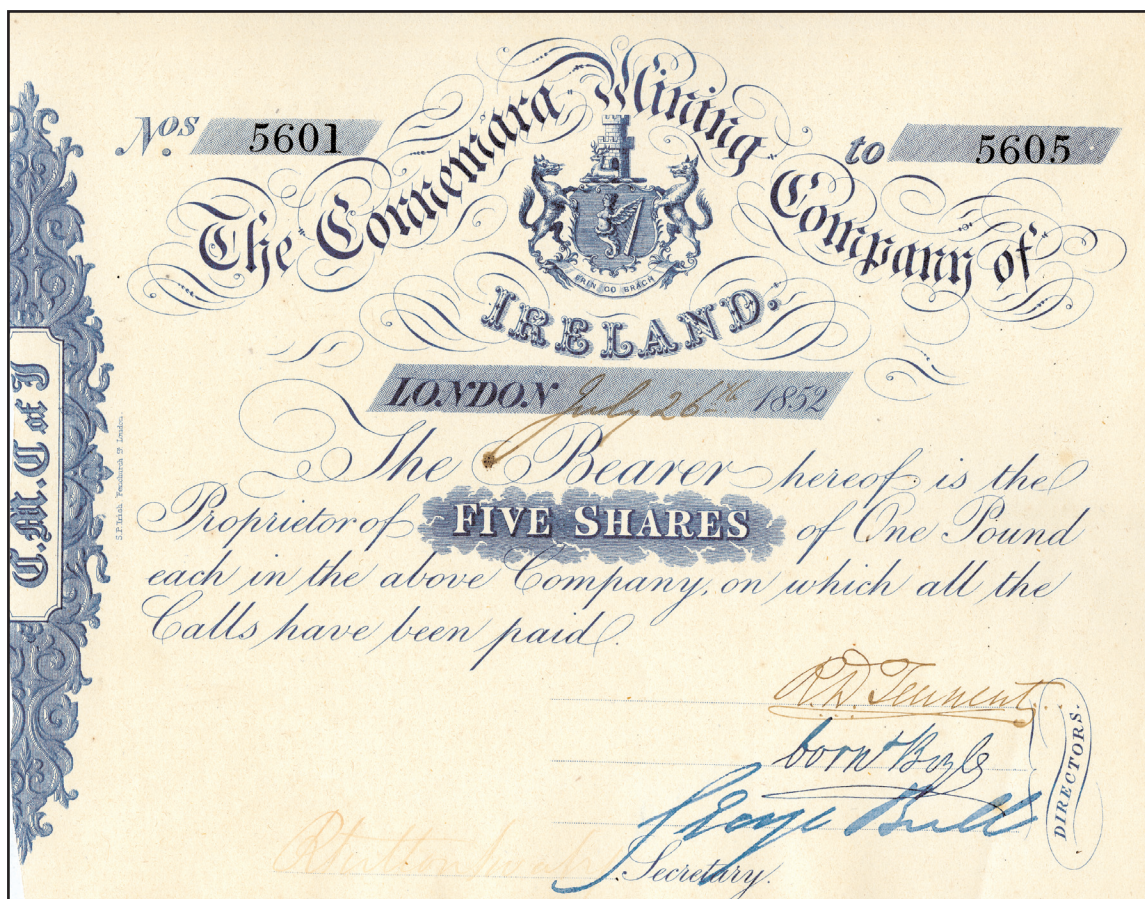 Nos. 5601 to 5605
The Connemara Mining Company of
ERIN GO BRAGH
IRELAND.
LONDON July 26th 1852
The Bearer hereof is the
Proprietor of FIVE SHARES of One Pound
each in the above Company, on which all the
Calls have been paid
C.M.C of I
R.D. Tennent
Boyle
George Bull
DIRECTORS.
Secretary.